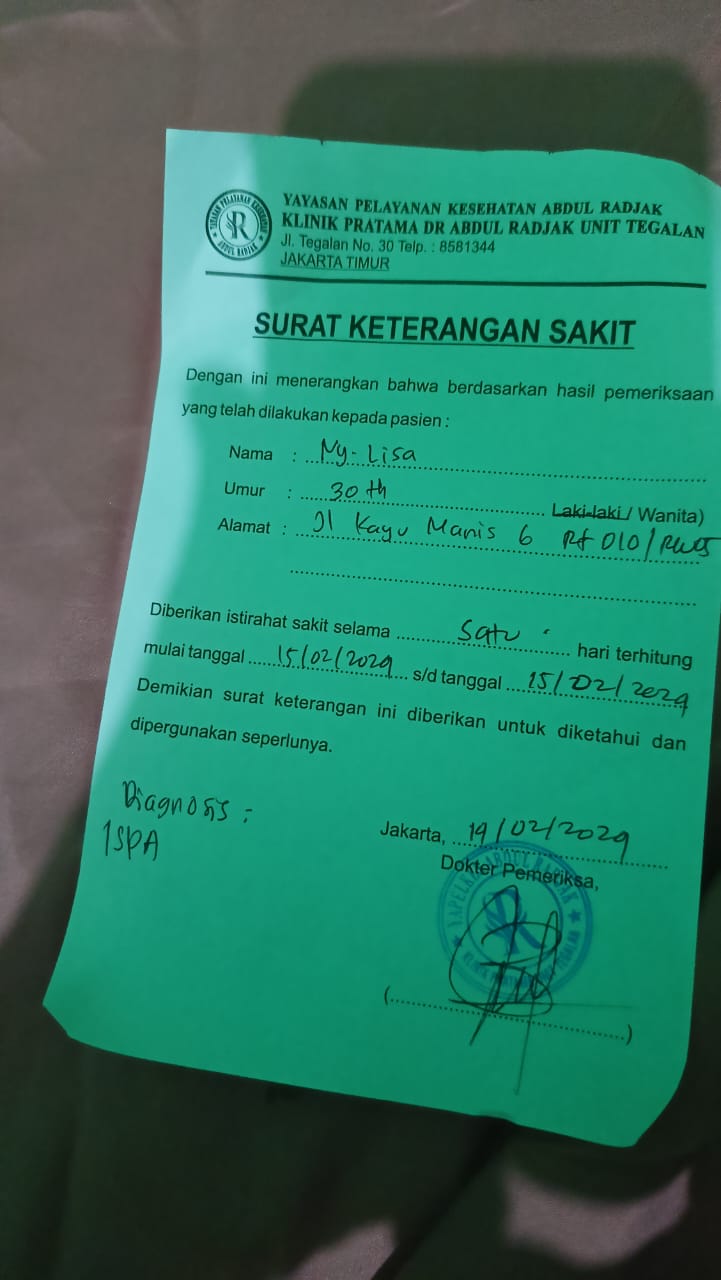 YAYASAN PELAYANAN KESEHATAN ABDUL RADJAK
KLINIK PRATAMA DR ABDUL RADJAK UNIT TEGALAN
Jl. Tegalan No. 30 Telp. : 8581344
JAKARTA TIMUR
YAYASAN PELAYANAN KESEHATAN
ABDUL RADJAK
R
SURAT KETERANGAN SAKIT
Dengan ini menerangkan bahwa berdasarkan hasil pemeriksaan
yang telah dilakukan kepada pasien :
Nama : Ny. Lisa
Umur : 30 th Laki-laki / Wanita)
Alamat : Jl Kayu Manis 6 Rt 010/RW05
Diberikan istirahat sakit selama satu hari terhitung
mulai tanggal 15/02/2024 s/d tanggal 15/02/2024
Demikian surat keterangan ini diberikan untuk diketahui dan
dipergunakan seperlunya.
Diagnosis :
ISPA
Jakarta, 14/02/2024
Dokter Pemeriksa,
ABDUL RADJAK
R
(....................)